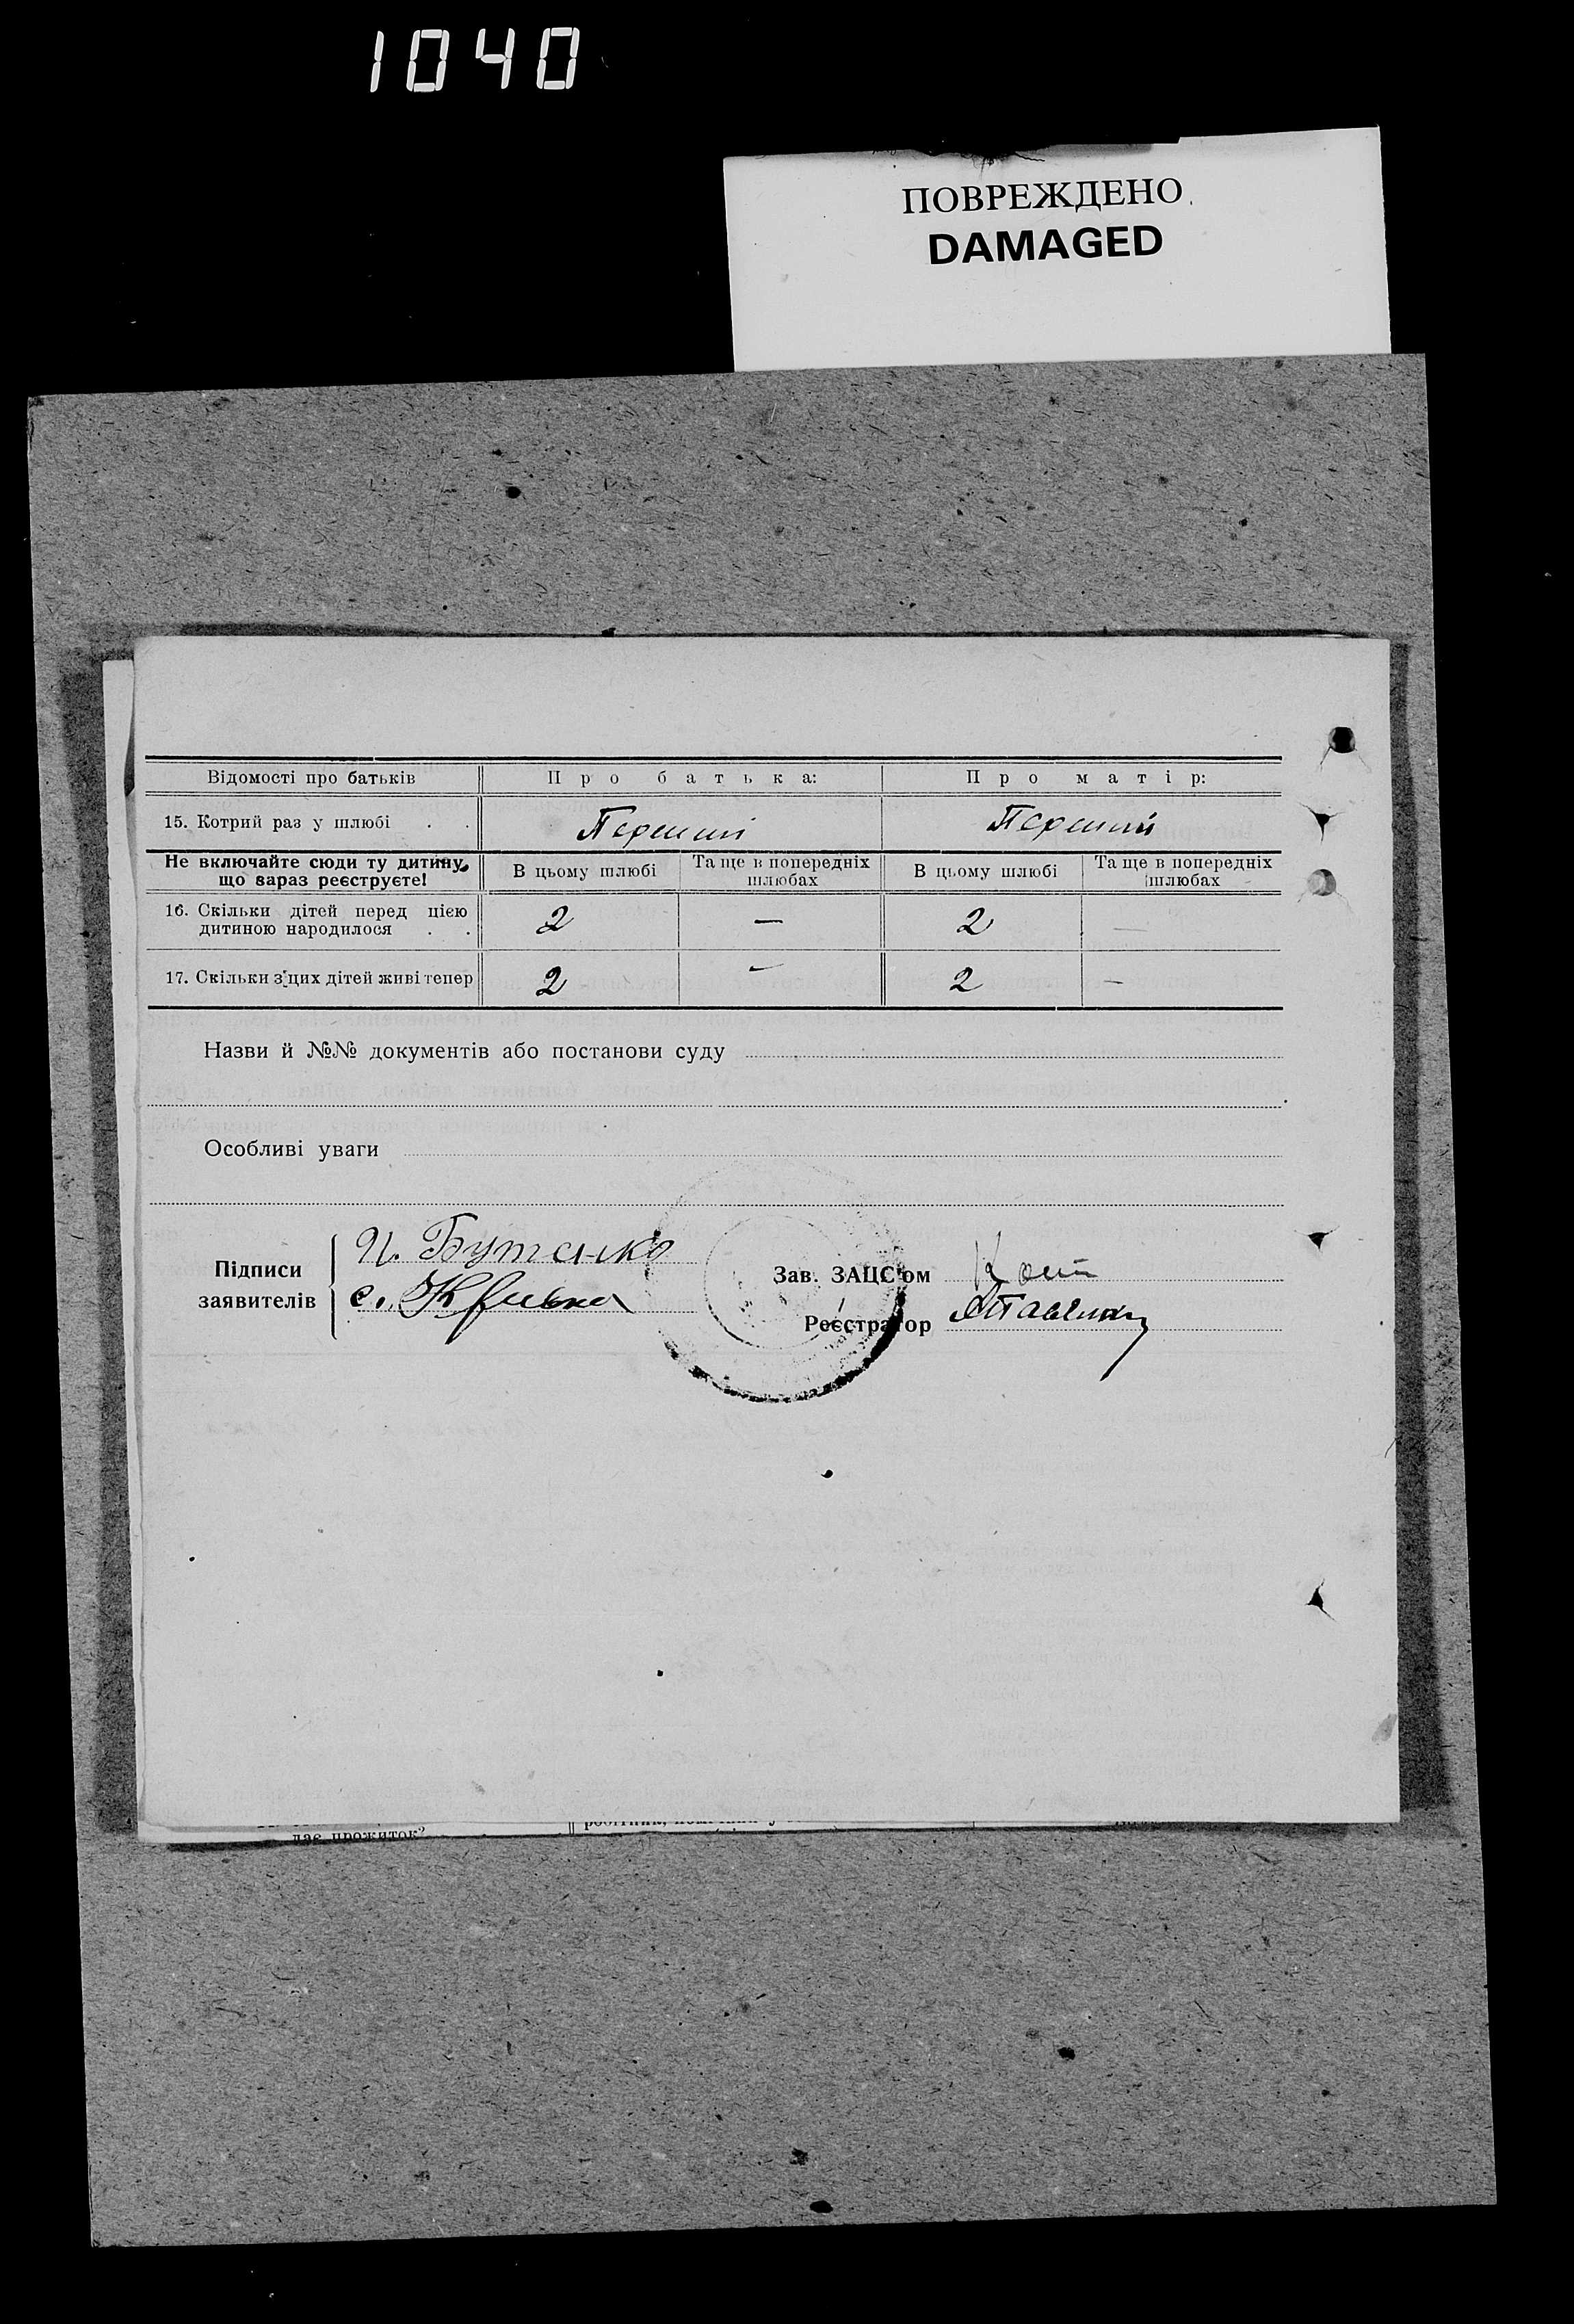 1040
ПОВРЕЖДЕНО
DAMAGED
Відомості про батьків
Про батька:
Про матір:
15. Котрий раз у шлюбі . .
Перший
Перший
Не включайте сюди ту дитину,
що зараз реєструєте!
В цьому шлюбі
Та ще в попередніх
шлюбах
В цьому шлюбі
Та ще в попередніх
шлюбах
16. Скільки дітей перед цією
дитиною народилося . .
2
—
2
—
17. Скільки з цих дітей живі тепер
2
—
2
—
Назви й №№ документів або постанови суду
Особливі уваги
Підписи
заявителів
И. Бутенко
с.
Зав. ЗАЦС'ом
Реєстратор
дає прожиток?